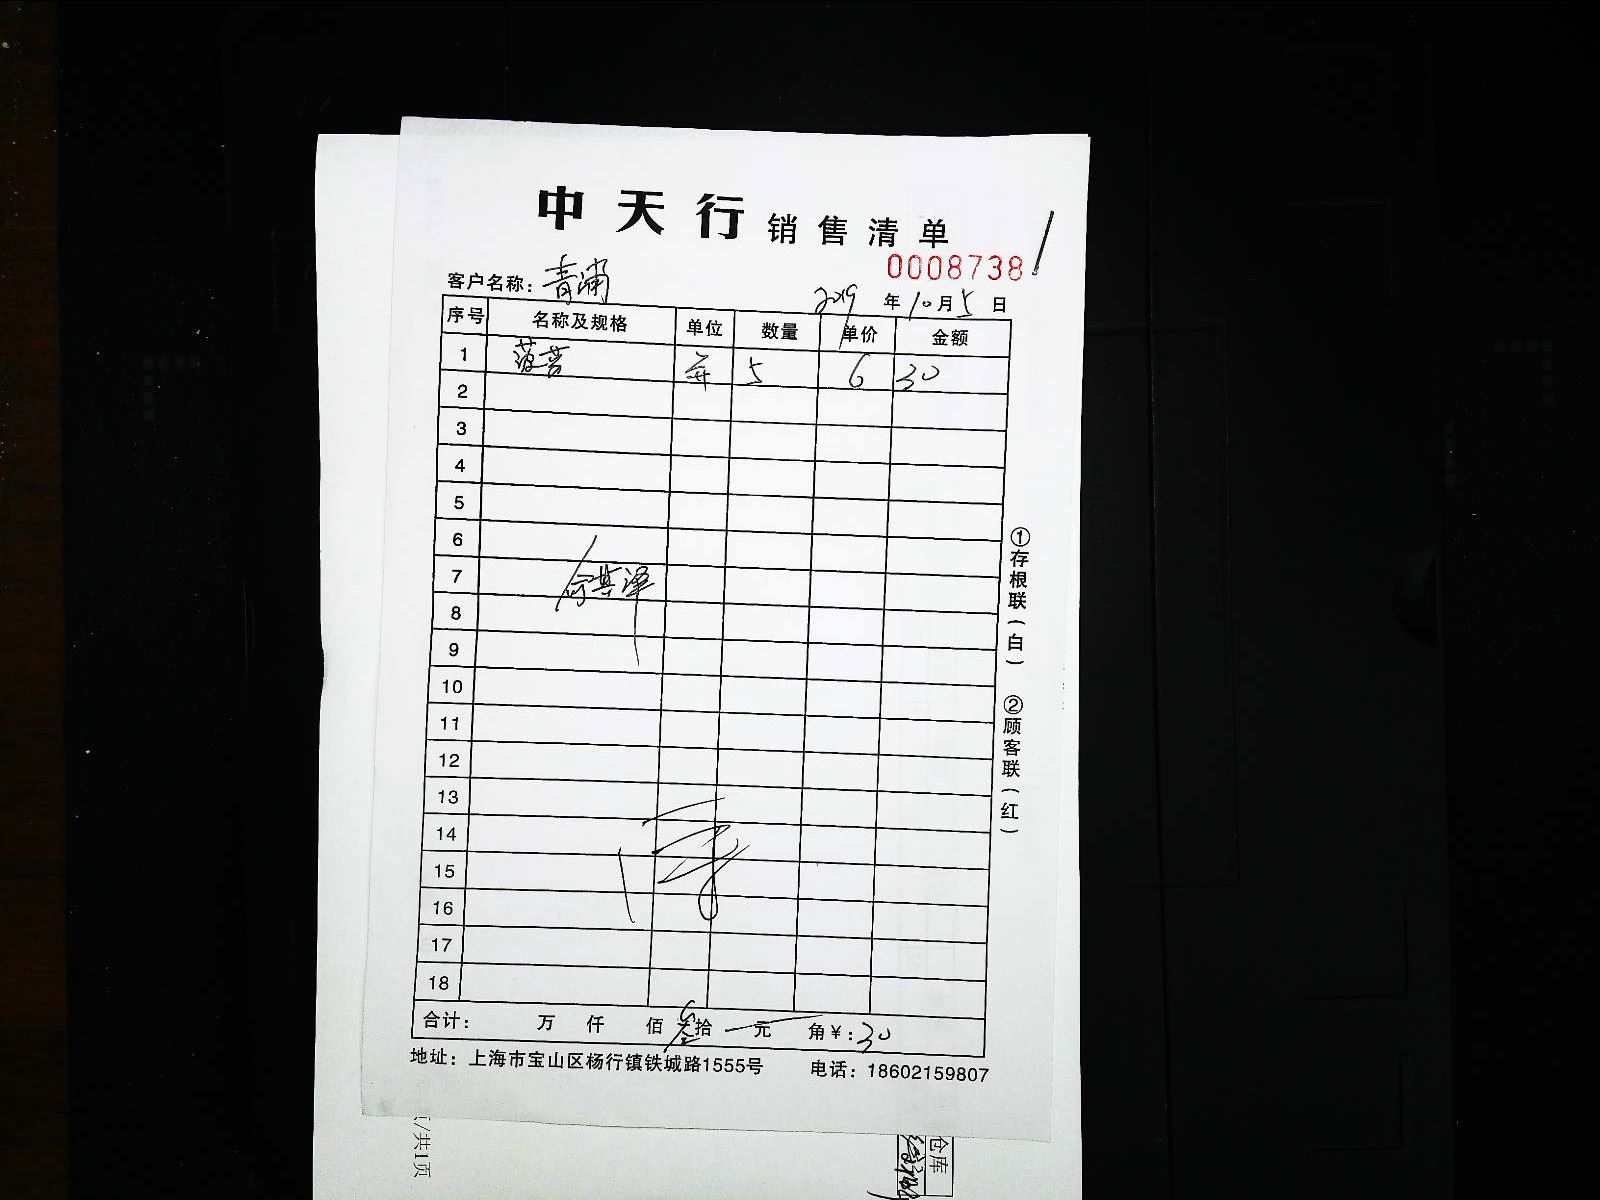 中天行 销售清单
0008738
客户名称：青浦
2019年10月5日
序号 名称及规格 单位 数量 单价 金额
1 菠萝 5 6 30
2
3
4
5
6
7
8
9
10
11
12
13
14
15
16
17
18
合计： 万 仟 佰 叁拾 元 角 ¥：30
地址：上海市宝山区杨行镇铁城路1555号 电话：18602159807
①存根联（白）
②顾客联（红）
/共1页
仓库